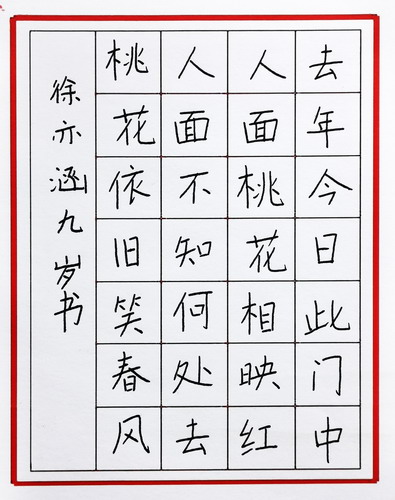 去年今日此门中
人面桃花相映红
人面不知何处去
桃花依旧笑春风
徐亦涵九岁书